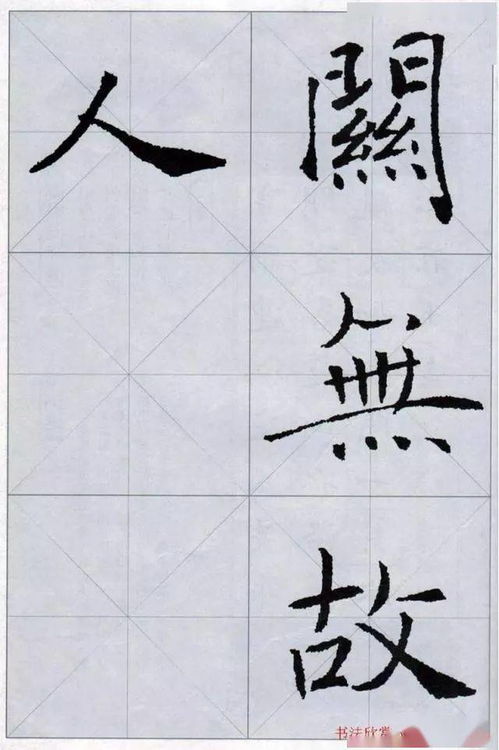 關無故
人
书法欣赏